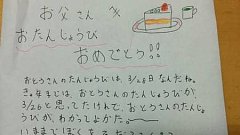 お父さん へ
おたんじょうび
おめでとう!!
おとうさんのたんじょうびは、3/28日なんだね。
きょ年まで は、おとうさんのたんじょうびが
3/26と思ってたけど、おとうさんのたんじょう
びが、わかってよかた。
いままでぼくを